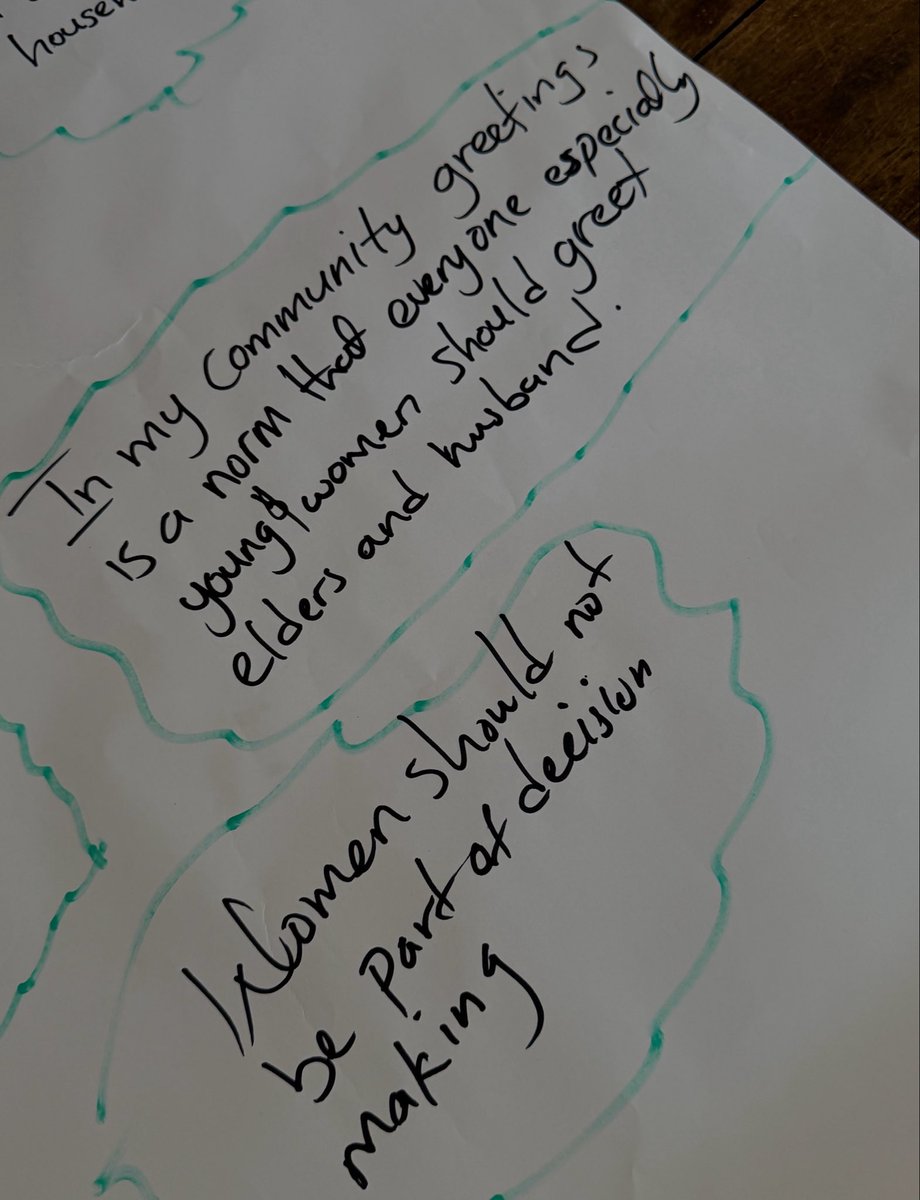 househ
In my Community greetings
is a norm that everyone especially
young & women should greet
elders and husband.
Women should not
be Part of decision
making